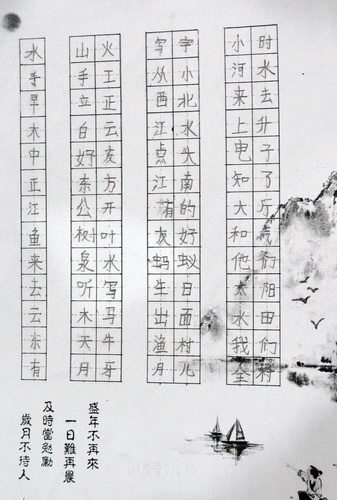 水
手
早
木
中
正
江
鱼
来
去
云
东
有
山火
手王
立正
白云
好友
东方
公开
树叶
泉水
听写
木马
天牛
月牙
写字
从小
西北
江水
点头
江南
有的
友好
蚂蚁
生日
出面
渔村
月儿
小时
河水
来去
上升
电子
知了
大斤
和气
他们
太阳
水田
我们
全
盛年不再來
一日難再晨
及時當勉勵
歲月不待人